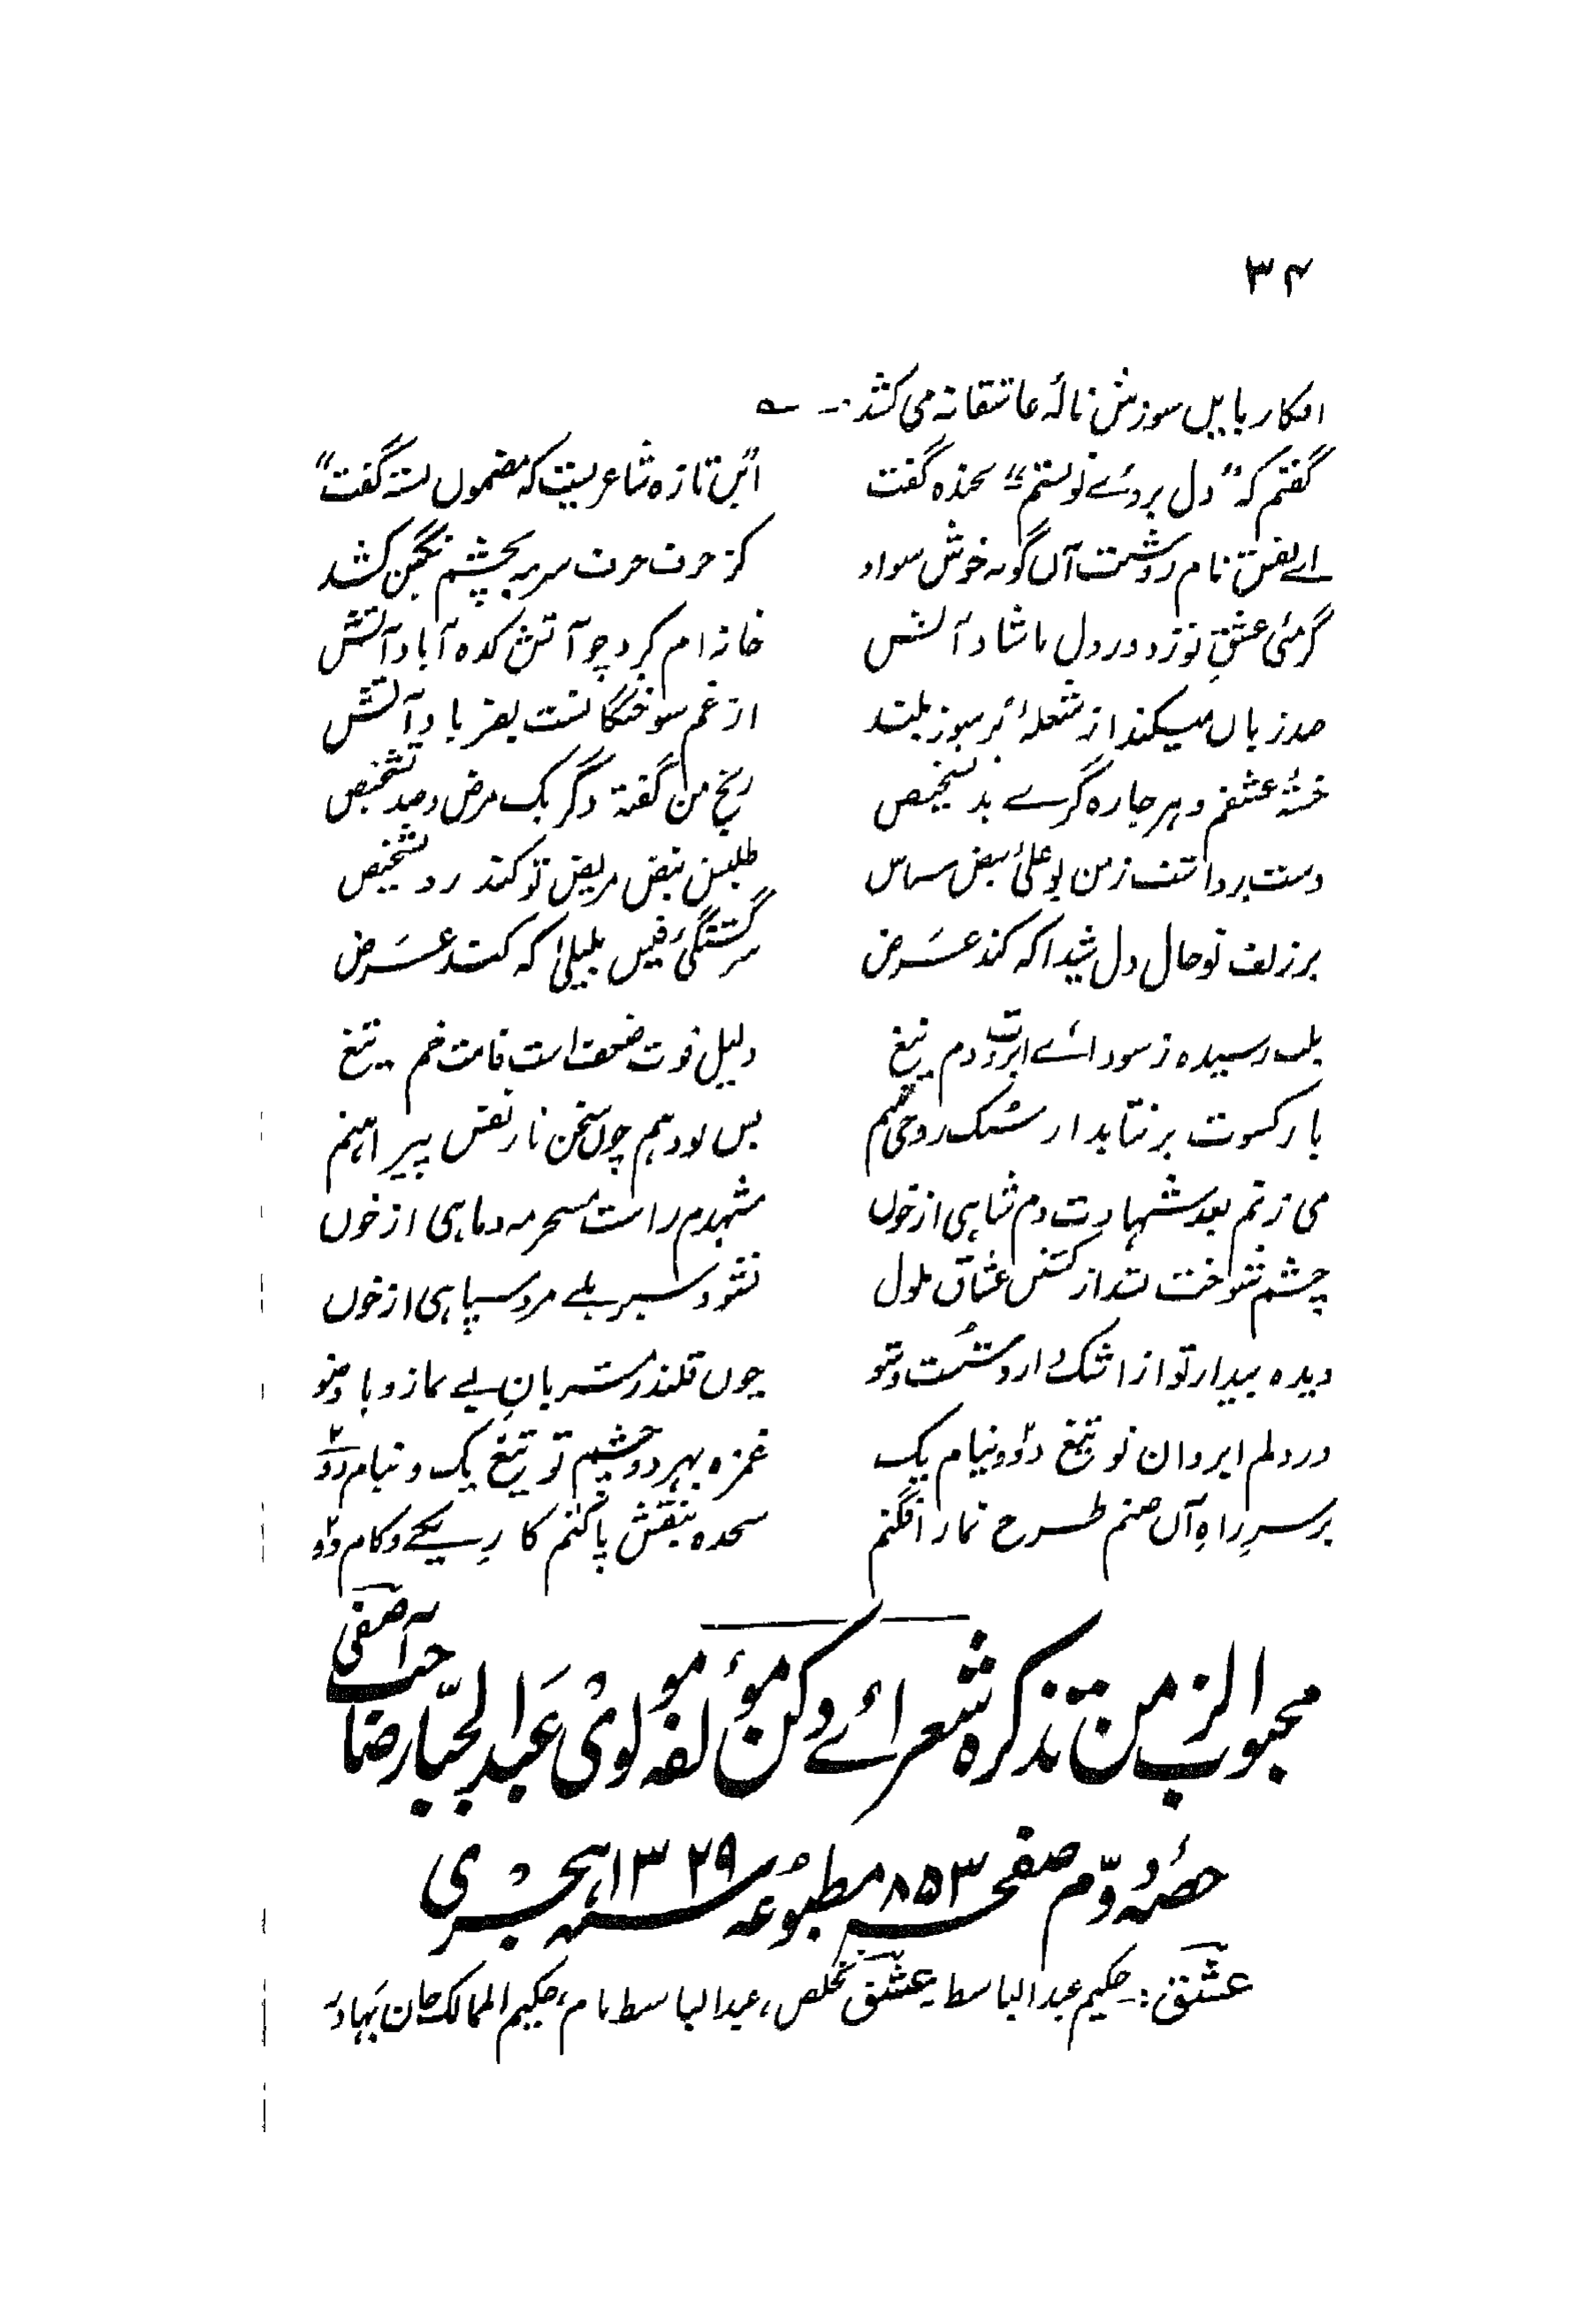 ۳۴
افکار بایں سوزش نالۂ عاشقانہ می کشد۔
گفتم کہ "دل بروئے تو بستم" بخندہ گفت
"ایں تازہ شاعریست کہ مضموں بستہ گفت"
اے نقش نام روشنت آں گونہ خوش سواد
کز حرف حرف سرمہ بچشم نگیں کشد
گرمئی عشقِ تو زد در دل ناشاد آتش
خانہ ام کرد چو آتش کدہ آباد آتش
صد زباں میکند از شعلۂ پر سوز بلند
از غم سوختگانت بفریاد آتش
خستۂ عشقم و ہر چارہ گرے بد تشخیص
رنج من گفتہ دگر یک مرض و صد تشخیص
دست برداشت ز من بو علی نبض شناس
طلبش نبض مریض تو کند رد تشخیص
بر زلف تو حال دل شیدا کہ کند عرض
سرگشتگیٔ قیس بلیلیٰ کہ کند عرض
بلب رسیدہ ز سودائے ابرویت دم تیغ
دلیل قوت ضعف است قامت خم تیغ
بار کسوت بر نتابد از سبک روحی تنم
بس بود ہم چوں سخن تار نفس پیراہنم
می زنم بعد شہادت دم شاہی از خوں
مشہدم راست مسحر مہ و ماہی از خوں
چشم شوخت نشد از کشتن عشاق ملول
نشود سیر بلے مرد سپاہی از خوں
دیدہ بیدار تو از اشک دارد شست و شو
چوں قلندر مشربانِ بے نماز و با وضو
در دلم ابروان تو تیغ دو و نیام یک
غمزہ بہر دو چشم تو تیغ یک و نیام دو
بر سرِ راہِ آں صنم طرح نماز افگنم
سجدہ بنقش پا کنم کارِ یکے و کام دو
محبوب الزمن تذکرہ شعرائے دکن مؤلفہ مولوی عبد الجبار صاحب آصفی
حصۂ دوّم صفحہ ۸۵۳ مطبوعہ سنہ ۱۳۲۹ ہجری
عشق:۔ حکیم عبد الباسط۔ عشق تخلص، عبد الباسط نام، حکیم الممالک خان بہادر